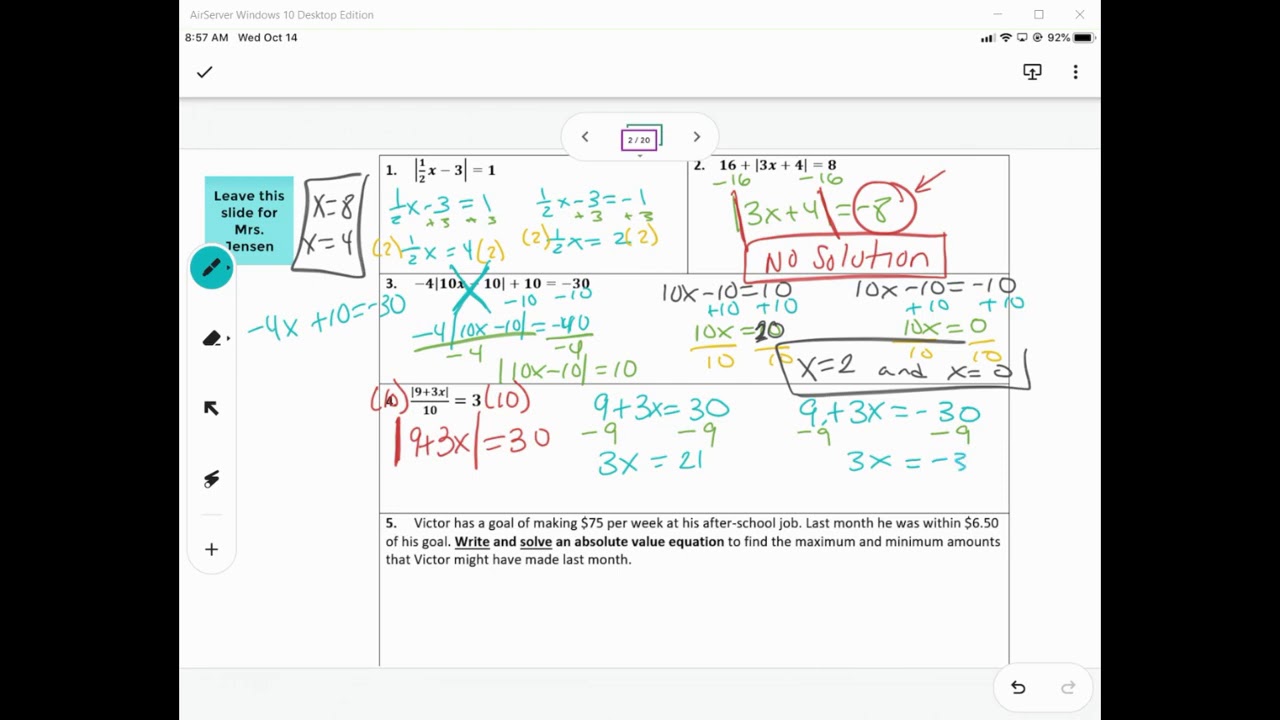 AirServer Windows 10 Desktop Edition
8:57 AM Wed Oct 14
92%
2 / 20
Leave this
slide for
Mrs.
Jensen
x=8
x=4
1. |1/2x − 3| = 1
1/2x-3=1
+3 +3
(2)1/2x=4(2)
1/2x-3=-1
+3 +3
(2)1/2x=2(2)
2. 16 + |3x + 4| = 8
-16 -16
|3x+4|=-8
No Solution
3. −4|10x 10| + 10 = −30
-10 -10
-4x+10=-30
-4|10x-10|=-40
-4 -4
|10x-10|=10
10x-10=10
+10 +10
10x=20
10 10
10x-10=-10
+10 +10
10x=0
10 10
x=2 and x=0
|9+3x|/10 = 3
(10) (10)
|9+3x|=30
9+3x=30
-9 -9
3x=21
9+3x=-30
-9 -9
3x=-3
5. Victor has a goal of making $75 per week at his after-school job. Last month he was within $6.50
of his goal. Write and solve an absolute value equation to find the maximum and minimum amounts
that Victor might have made last month.